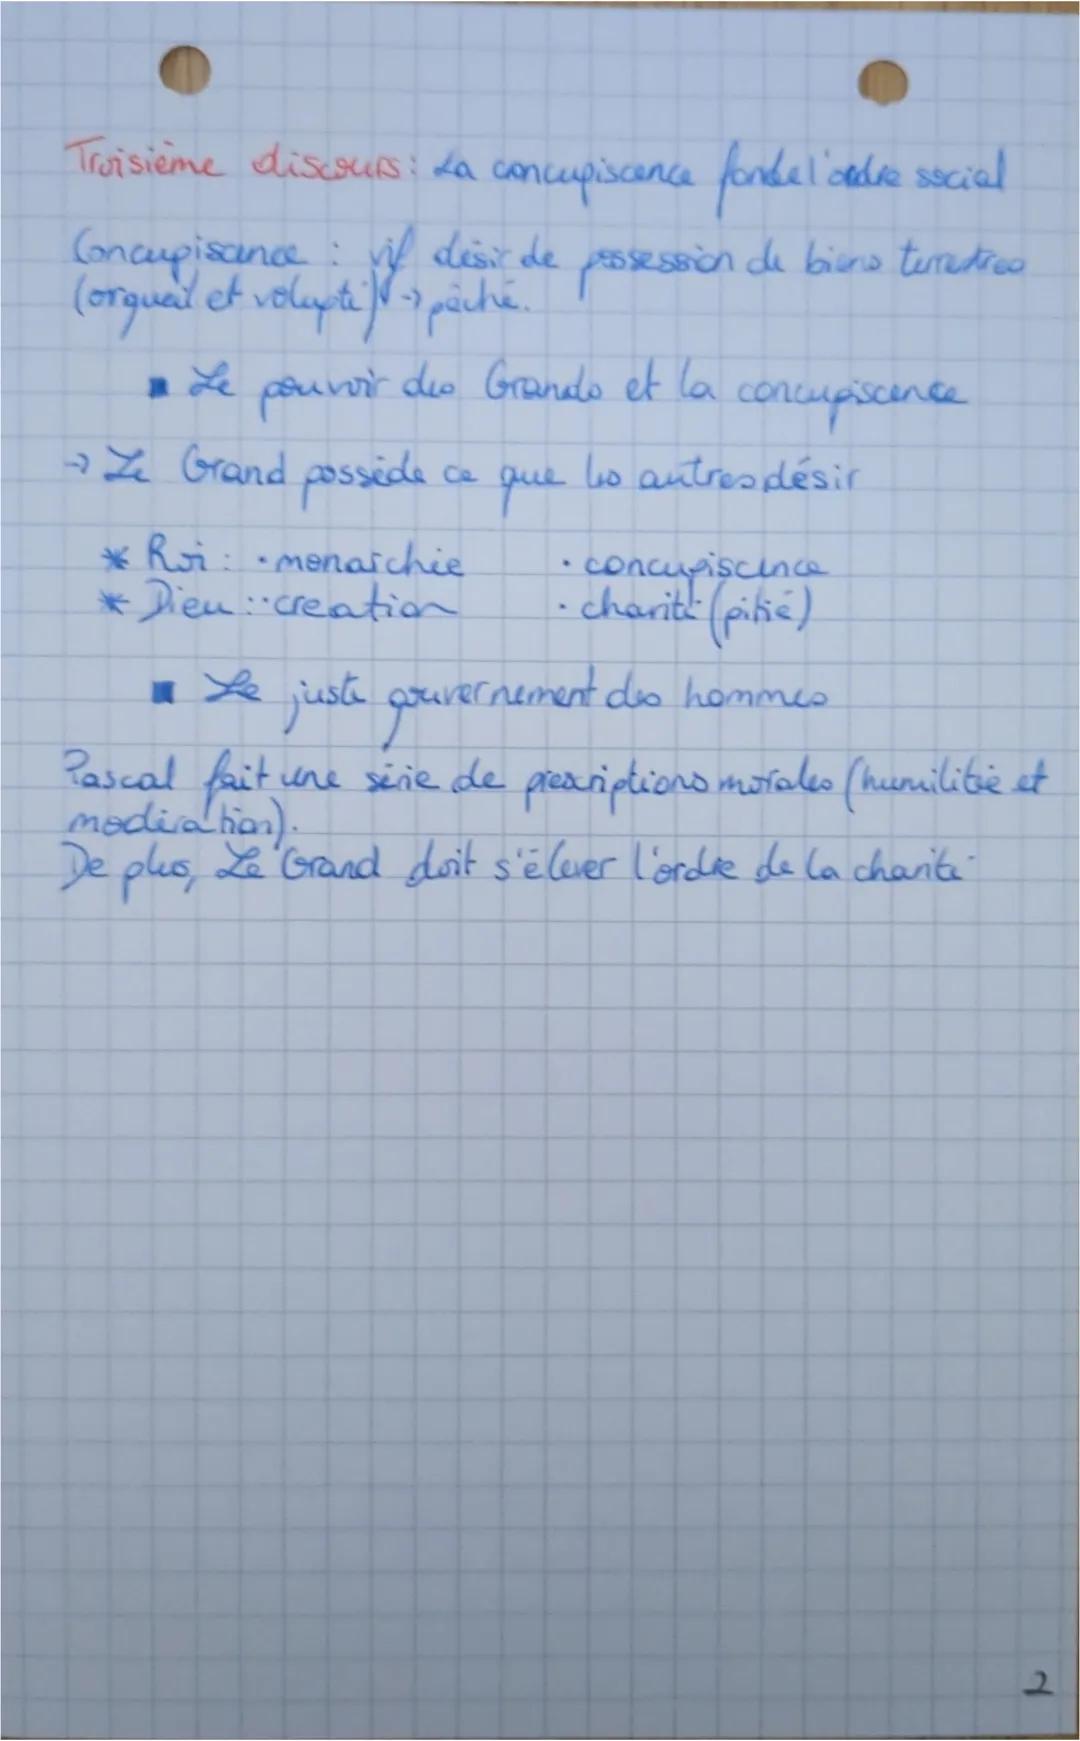 Troisième discours : La concupiscence fonde l'ordre social
Concupisance : vif désir de possession de biens terrestres
(orgueil et volupté) -> péché.
▪ Le pouvoir des Grands et la concupiscence
-> Le Grand possède ce que les autres désir
* Roi : · monarchie · concupiscence
* Dieu : · creation · charité (pitié)
▪ Le juste gouvernement des hommes
Pascal fait une série de prescriptions morales (humilitié et
modération).
De plus, Le Grand doit s'élever l'ordre de la charité
2